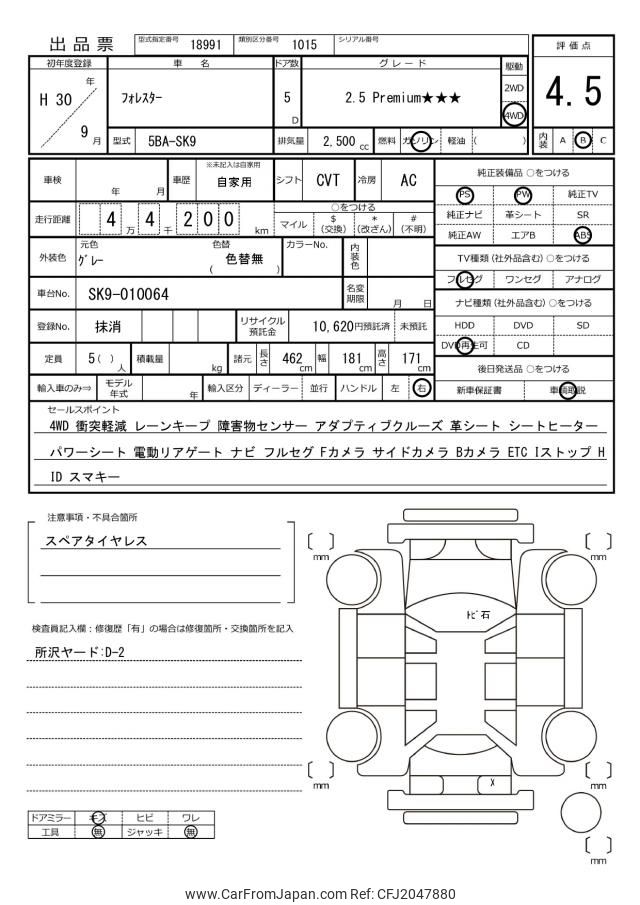 出品票 型式指定番号 18991 類別区分番号 1015 シリアル番号
評価点
4.5
初年度登録 車名 ドア数 グレード 駆動
H 30 年 9 月
フォレスター
5 D
2.5 Premium★★★
2WD
4WD
型式 5BA-SK9 排気量 2,500 cc 燃料 ガソリン 軽油 ( )
内装 A B C
車検 年 月 車歴 ※未記入は自家用 自家用 シフト CVT 冷房 AC
純正装備品 ○をつける
PS PW 純正TV
純正ナビ 革シート SR
純正AW エアB ABS
走行距離 4 万 4 千 2 0 0 km
○をつける
マイル $(交換) *(改ざん) #(不明)
外装色 元色 グレー 色替 ( 色替無 ) カラーNo. 内装色
TV種類 (社外品含む) ○をつける
フルセグ ワンセグ アナログ
車台No. SK9-010064 名変期限 月 日
ナビ種類 (社外品含む) ○をつける
HDD DVD SD
DVD再生可 CD
登録No. 抹消 リサイクル預託金 10,620円預託済 未預託
定員 5( )人 積載量 kg 諸元 長さ 462 cm 幅 181 cm 高さ 171 cm
後日発送品 ○をつける
新車保証書 車輌取説
輸入車のみ⇒ モデル年式 年 輸入区分 ディーラー 並行 ハンドル 左 右
セールスポイント
4WD 衝突軽減 レーンキープ 障害物センサー アダプティブクルーズ 革シート シートヒーター
パワーシート 電動リアゲート ナビ フルセグ Fカメラ サイドカメラ Bカメラ ETC Iストップ H
ID スマキー
注意事項・不具合箇所
スペアタイヤレス
検査員記入欄：修復歴「有」の場合は修復箇所・交換箇所を記入
所沢ヤード:D-2
ドアミラー キズ ヒビ ワレ
工具 無 ジャッキ 無
mm
mm
トビ石
mm
mm
X
mm
www.CarFromJapan.com Ref: CFJ2047880